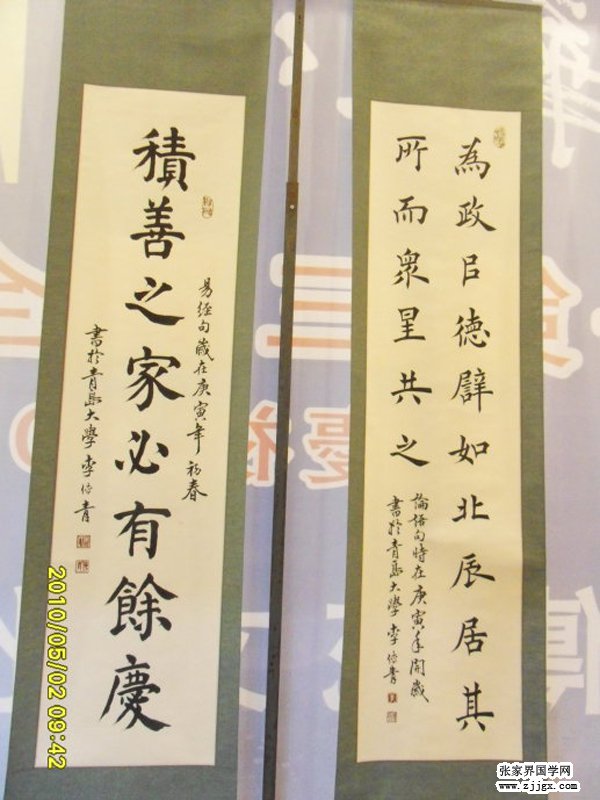 為政㠯德譬如北辰居其
所而眾星共之
論語句時在庚寅年開歲
書於青島大學李
積善之家必有餘慶
易經句歲在庚寅年初春
書於青島大學李
2010/05/02 09:42
张家界国学网
www.zjjgx.com